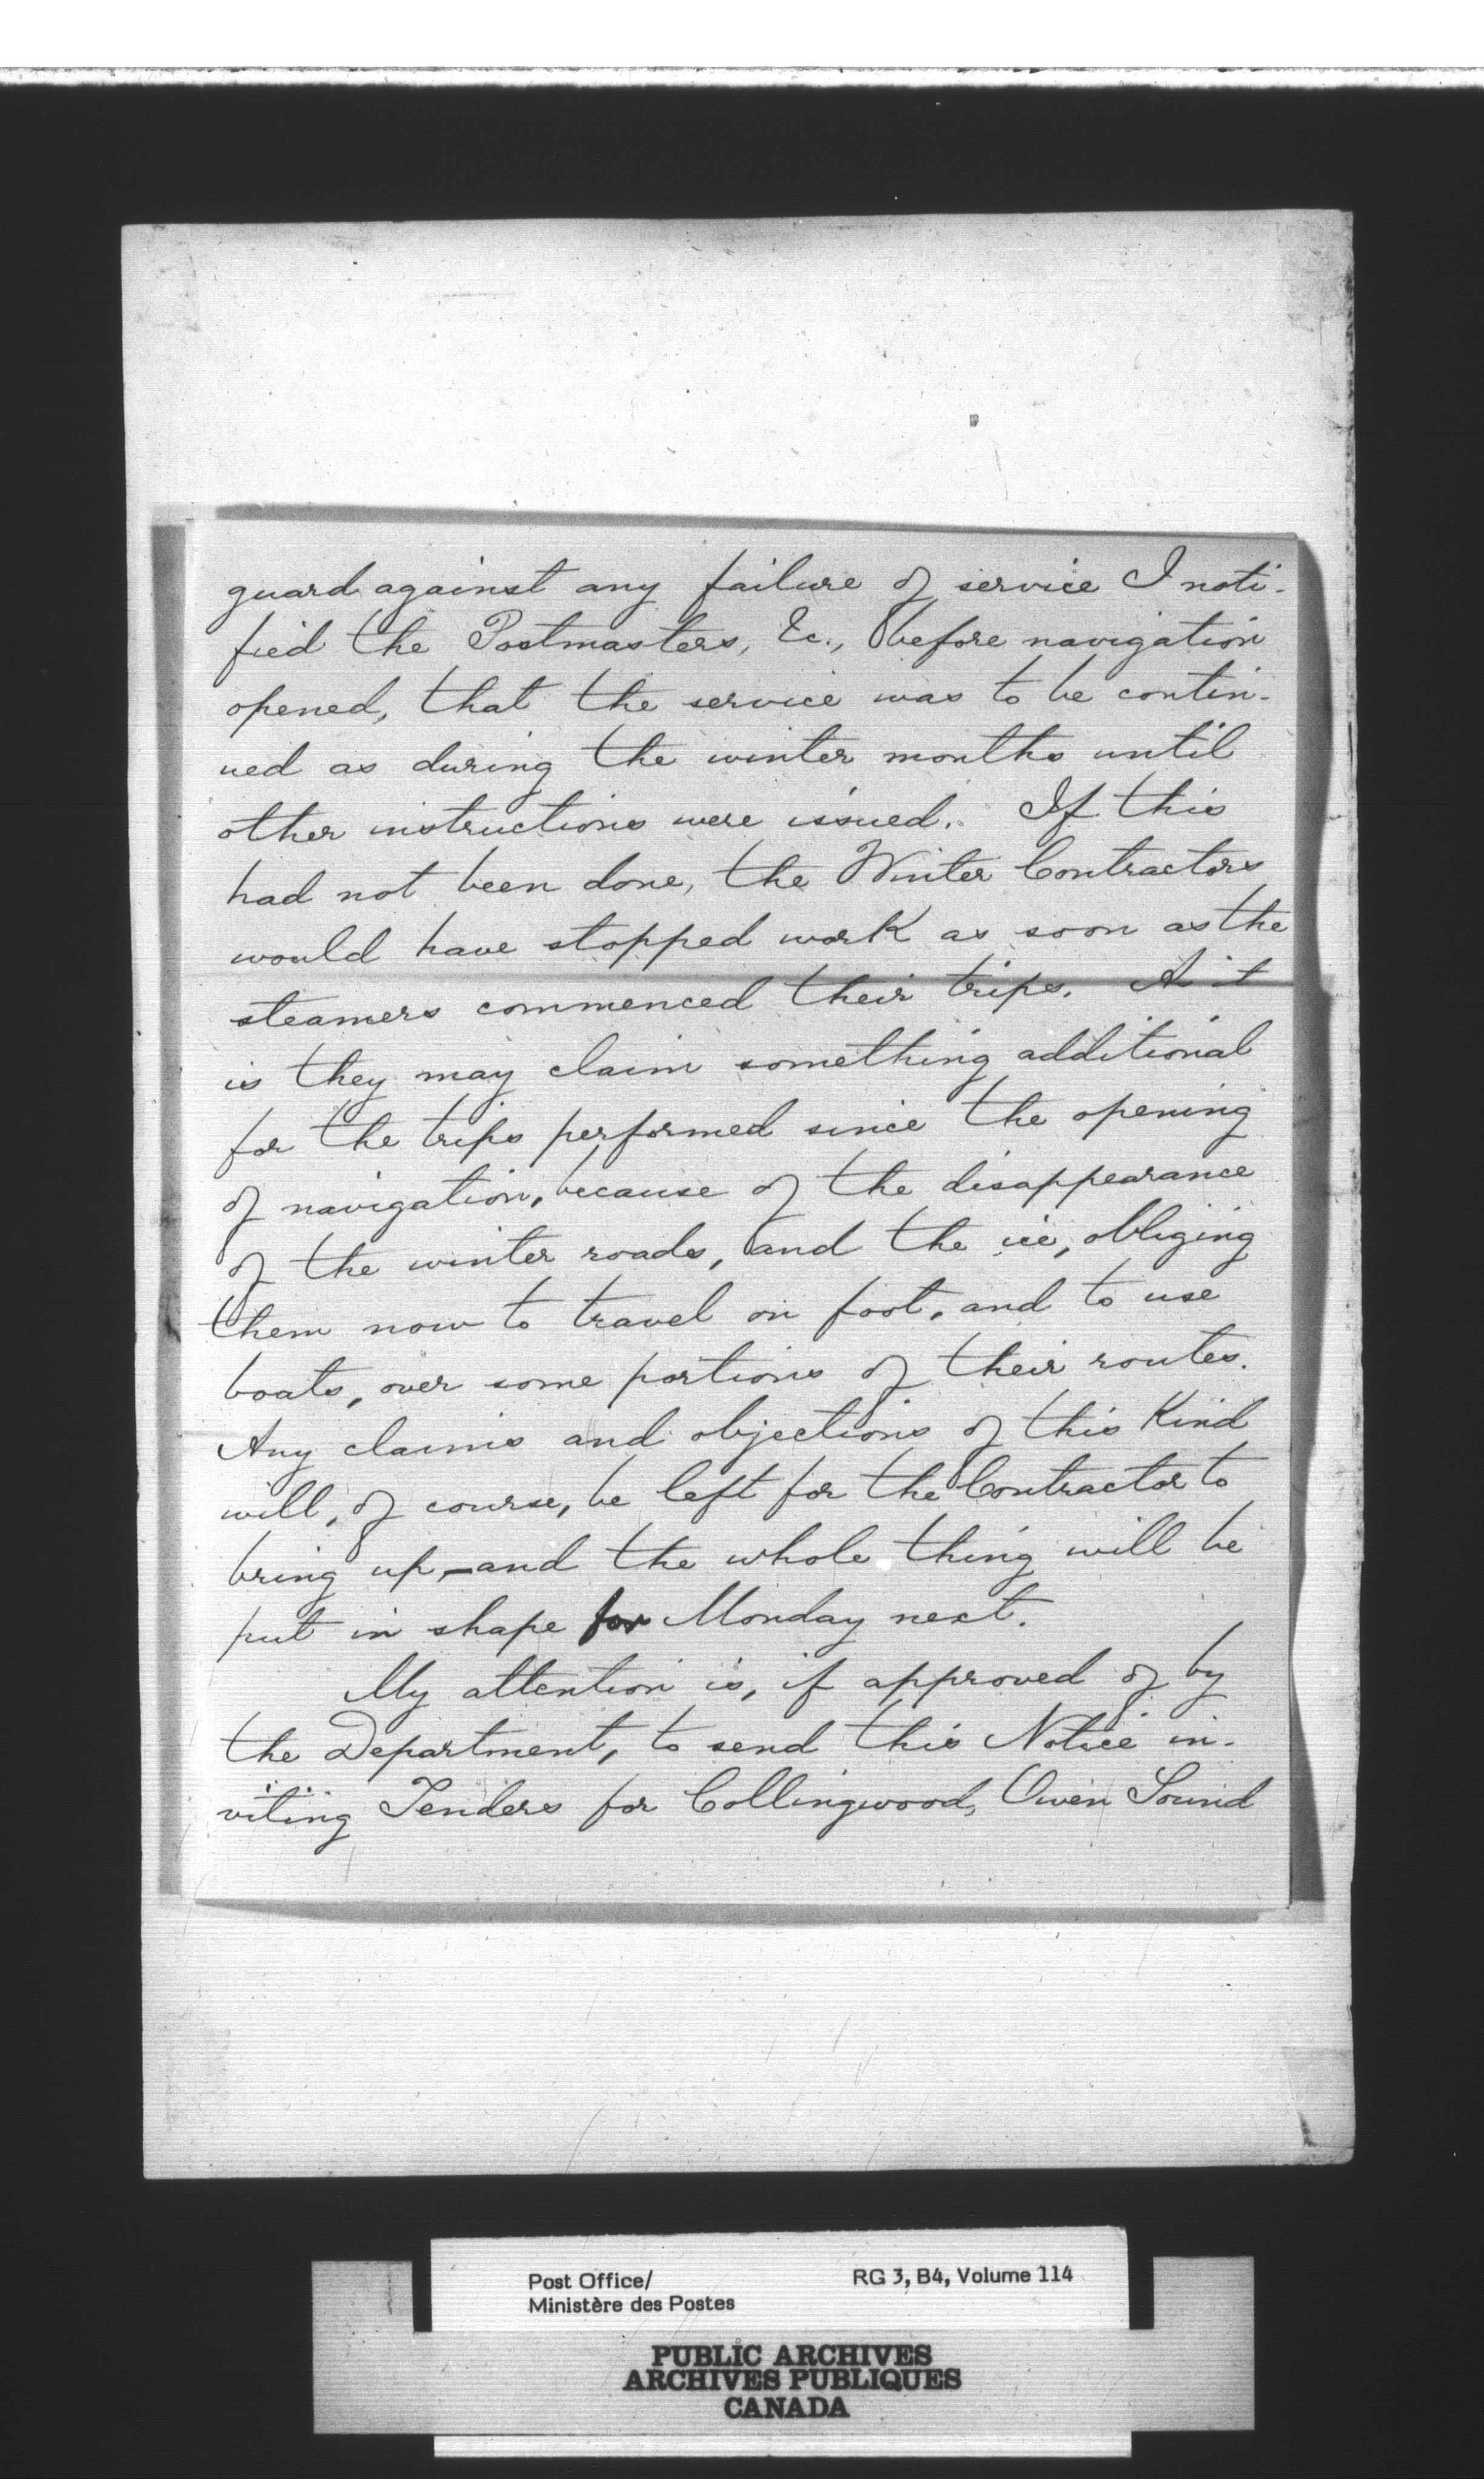 guard against any failure of service I noti-
fied the Postmasters, &c., before navigation
opened, that the service was to be contin-
ued as during the winter months until
other instructions were issued. If this
had not been done, the Winter Contractors
would have stopped work as soon as the
steamers commenced their trips. As it
is they may claim something additional
for the trips performed since the opening
of navigation, because of the disappearance
of the winter roads, and the ice, obliging
them now to travel on foot, and to use
boats, over some portions of their routes.
Any claims and objections of this Kind
will, of course, be left for the Contractor to
bring up, - and the whole thing will be
put in shape for Monday next.
My attention is, if approved of by
the Department, to send this Notice in-
viting Tenders for Collingwood, Owen Sound
Post Office/
Ministère des Postes
RG 3, B4, Volume 114
PUBLIC ARCHIVES
ARCHIVES PUBLIQUES
CANADA